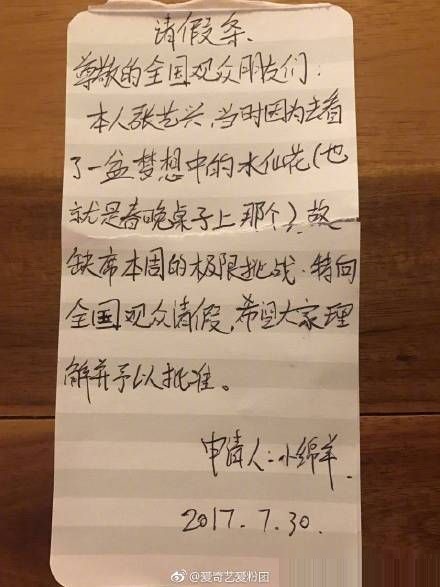 请假条.
尊敬的全国观众朋友们：
本人张艺兴,当时因为去看
了一盆梦想中的水仙花(也
就是春晚桌子上那个),故
缺席本周的极限挑战.特向
全国观众请假,希望大家理
解并予以批准。
申请人:小绵羊.
2017.7.30.
@爱奇艺爱粉团